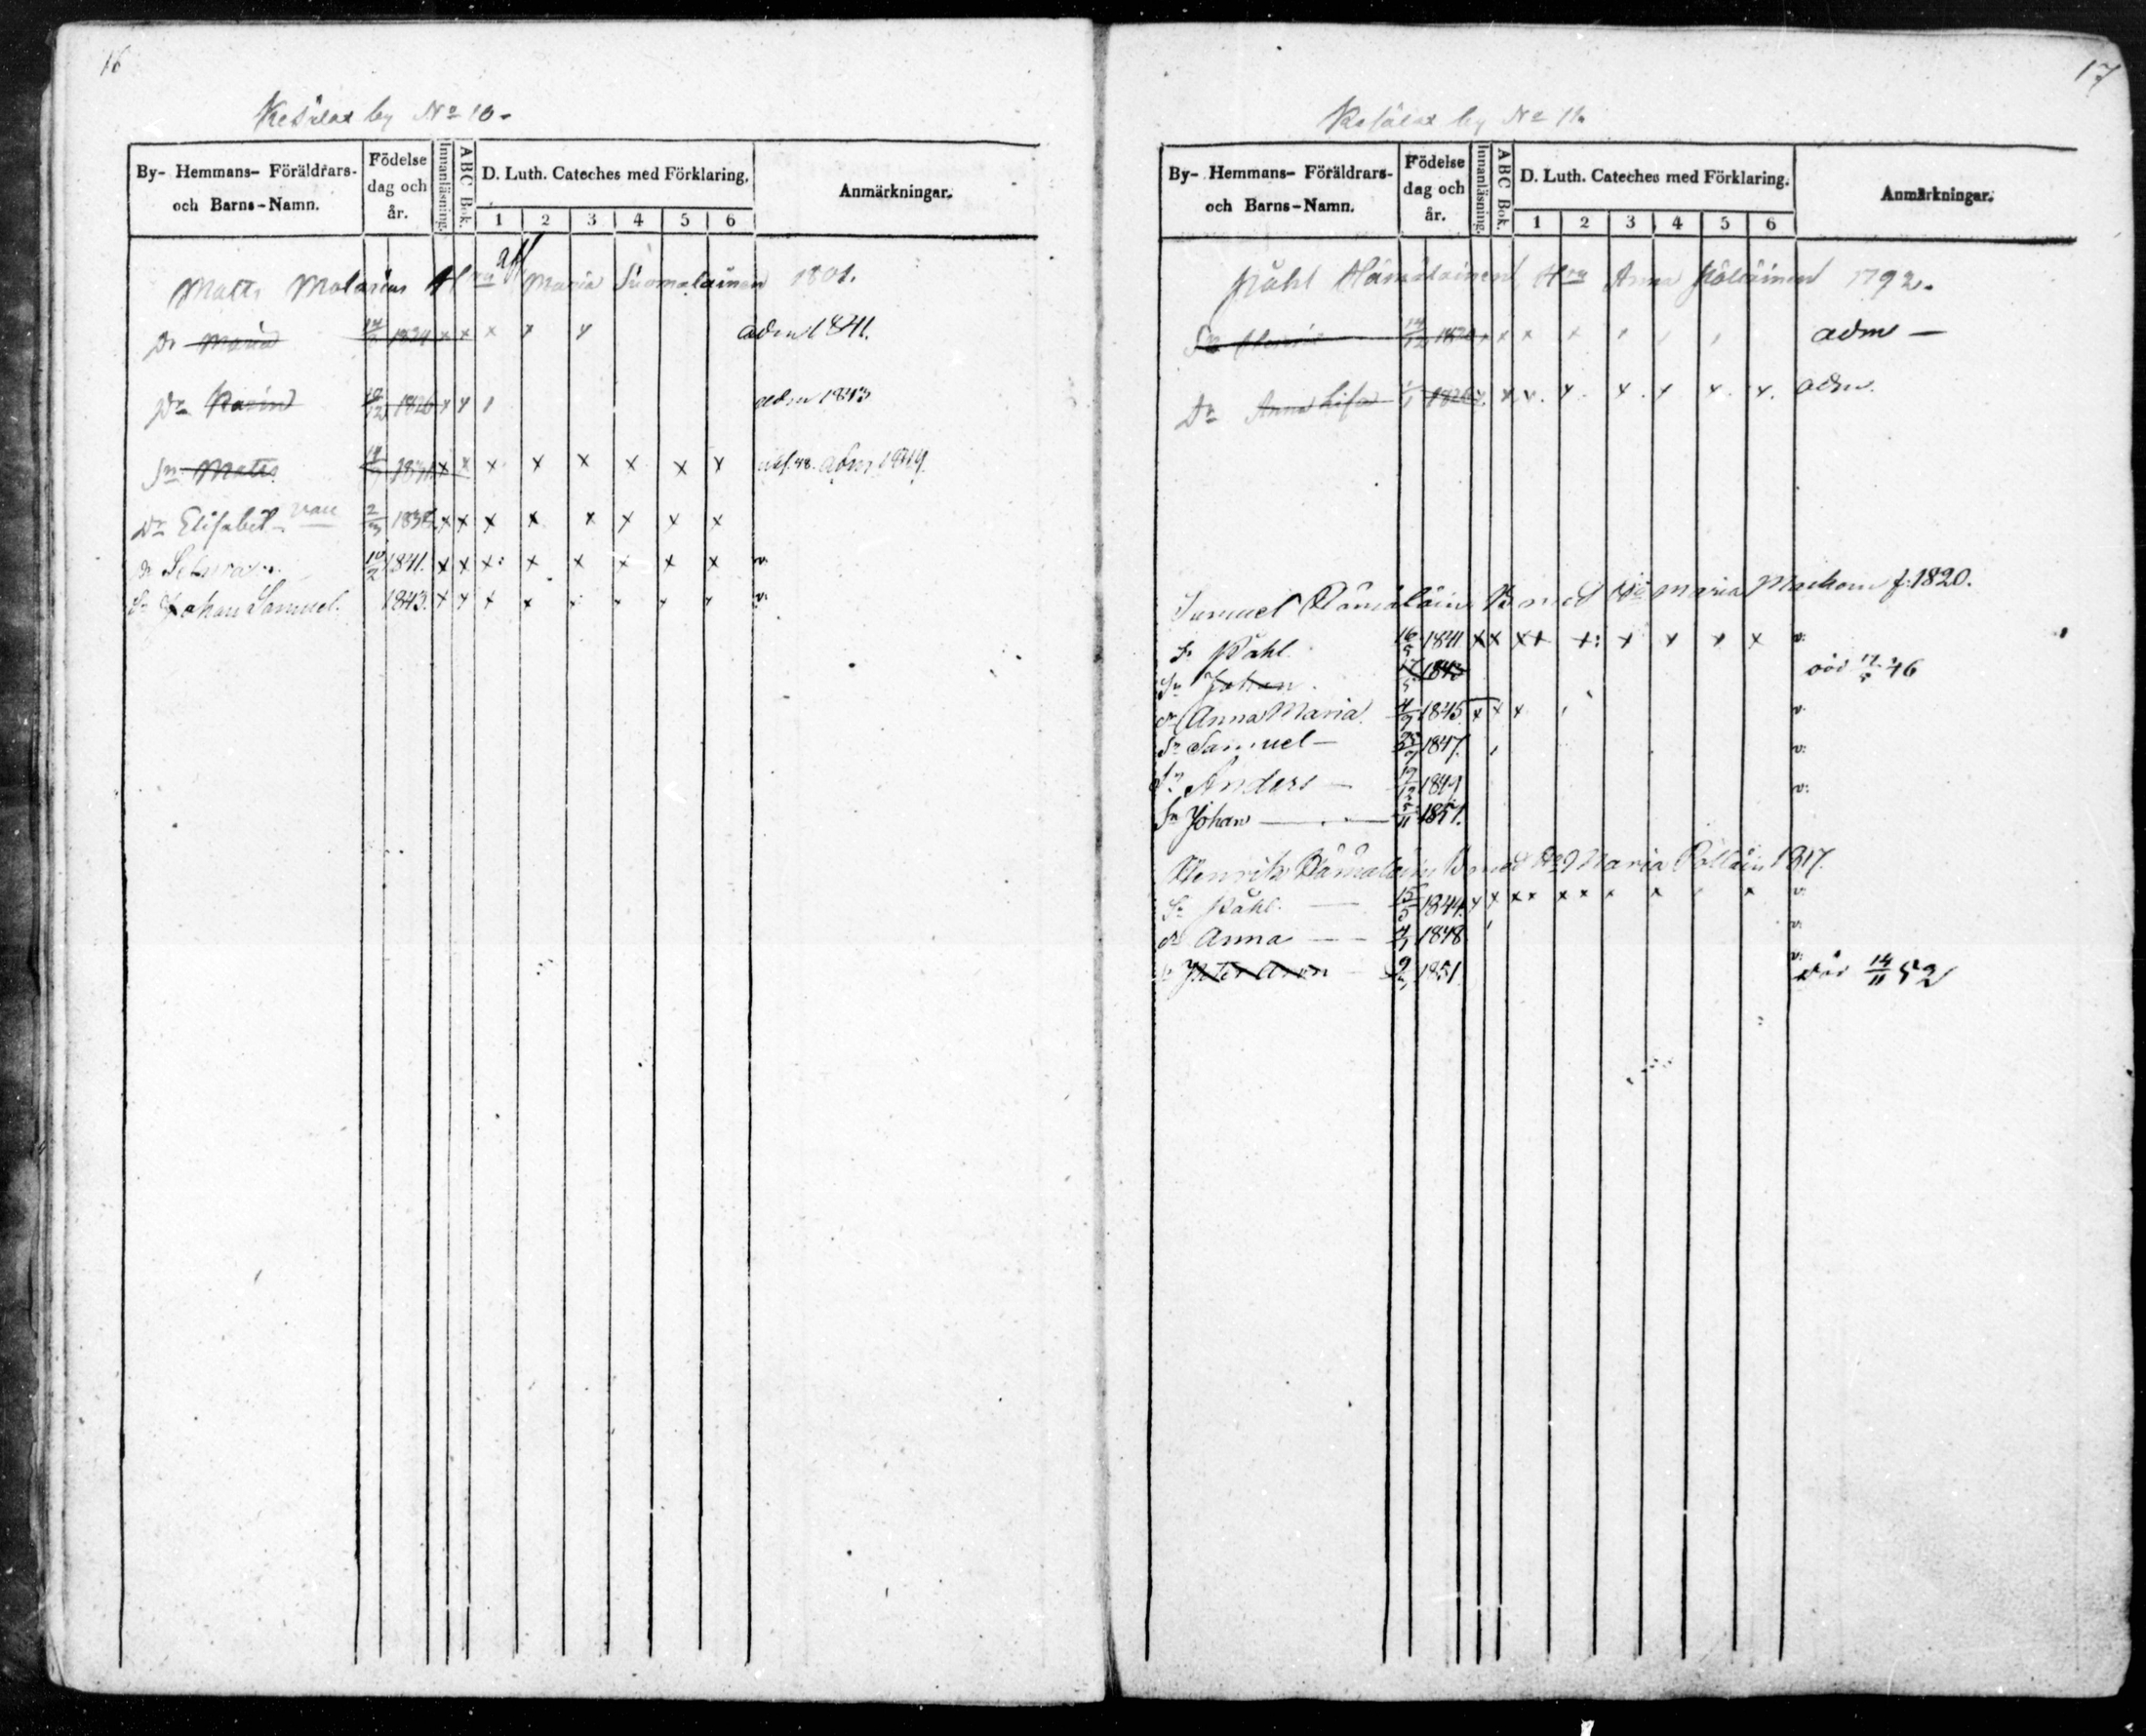 16
Kesälax by No 10.
By- Hemmans- Föräldrars- och Barns-Namn.
Födelse dag och år.
Innanläsning.
ABC Bok.
D. Luth. Cateches med Förklaring.
1 2 3 4 5 6
Anmärkningar.
Matts Hru Maria Suomalainen 1801.
Dr Maria 1824 x x x x x adm 1841.
Dr Karin 12 1826 x x adm 1843
Sn Matts 1831 x x x x x x x x adm 1849.
Dr Elisabet 2/3 1838 x x x x x x x x
Dr 10/2 1841. x x x x x x x x v.
Sn Johan Samuel. 1843. x x x x x x x x v.
17
Kesälax by No 11.
By- Hemmans- Föräldrars- och Barns-Namn.
Födelse dag och år.
Innanläsning.
ABC Bok.
D. Luth. Cateches med Förklaring.
1 2 3 4 5 6
Anmärkningar.
Påhl Hämäläinen Hru Anna Pöllöinen 1792.
Sn Henric 14/12 1820 x x x adm —
Dr Anna Lisa 1826 x x x x x x x adm.
Samuel Hämäläin Maria f. 1820.
Sn Påhl. 16/5 1841 x x x x x: x x x x v:
Sn Johan. 1843 död 46
dr Anna Maria. 4/7 1845 x x x v.
Sn Samuel — 1847. v:
Sn Anders — 19/12 1849 v:
Sn Johan — 5/11 1851.
Henrik Hämäläin med Maria Pöllöin 1817.
Sn Påhl. — 15/5 1844. x x x x x x x x x v:
dr Anna — 1848 v.
Sn Peter Aron 1851 v: död 14/11 52